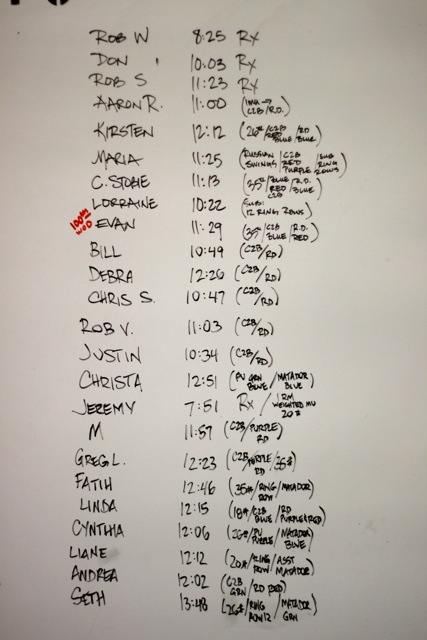 ROB W 8:25 Rx
DON 10:03 Rx
ROB S 11:23 Rx
AARON R. 11:00 (1MU → C2B/R.D.)
KIRSTEN 12:12 (26#/C2B RED BLUE/RD BLUE)
MARIA 11:25 (RUSSIAN SWINGS/C2B RED PURPLE/SUB RING ROWS)
C. STONE 11:13 (35#/BLUE RED C2B/R.D. BLUE)
LORRAINE 10:22 (SUB: 12 RING ROWS)
100th WOD EVAN 11:29 (35#/C2B BLUE/R.D. RED)
BILL 10:49 (C2B/RD)
DEBRA 12:26 (C2B/RD)
CHRIS S. 10:47 (C2B/RD)
ROB V. 11:03 (C2B/RD)
JUSTIN 10:34 (C2B/RD)
CHRISTA 12:51 (PU GRN BLUE/MATADOR BLUE)
JEREMY 7:51 Rx / 1RM WEIGHTED MU 20#
M 11:57 (C2B/PURPLE RD)
GREG L. 12:23 (C2B RD/PURPLE/35#)
FATIH 12:46 (35#/RING ROW/MATADOR)
LINDA 12:15 (18#/C2B BLUE/RD PURPLE&RED)
CYNTHIA 12:06 (26#/PU PURPLE/MATADOR BLUE)
LIANE 12:12 (20#/RING ROW/ASST MATADOR)
ANDREA 12:02 (C2B GRN/RD RED)
SETH 13:48 (26#/RING ROW12/MATADOR GRN)